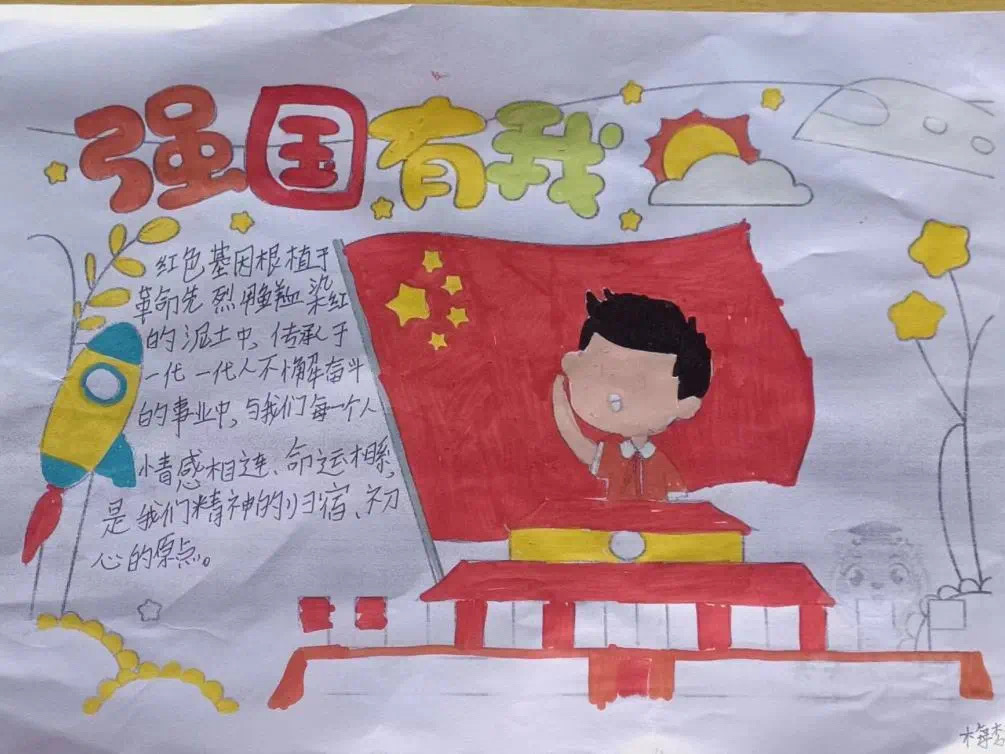 强国有我
红色基因根植于
革命先烈用鲜血染红
的泥土中,传承于
一代一代人不懈奋斗
的事业中,与我们每一个人
情感相连、命运相系,
是我们精神的归宿、初
心的原点。